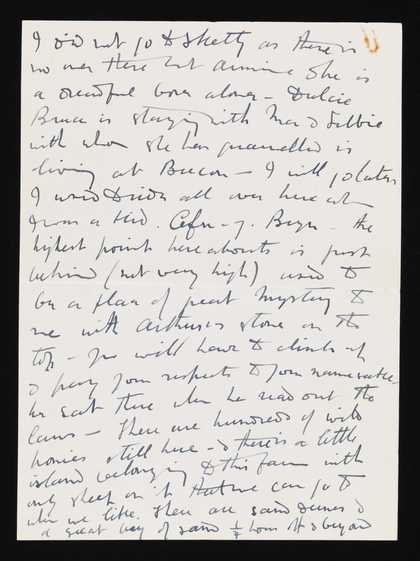 I did not go to Sketty as there is
no one there but Aminie She is
a dreadful bore alone – Dulcie
Bruce is staying with Mrs D
with whom she has quarrelled is
living at Brecon – I will go later
I used to ride all over here when
I was a kid. Cefn-y-Bryn – the
highest point here abouts is just
behind (not very high) used to
be a place of great mystery to
me with Arthurs stone on the
top – you will have to climb up
& pay your respects to your namesake
he sat there when he read out the
laws – There are hundreds of wild
ponies still here – & there is a little
island belonging to this farm with
only sheep on it that we can go to
when we like. There are sand dunes &
a great bay of sand ½ hour off & beyond